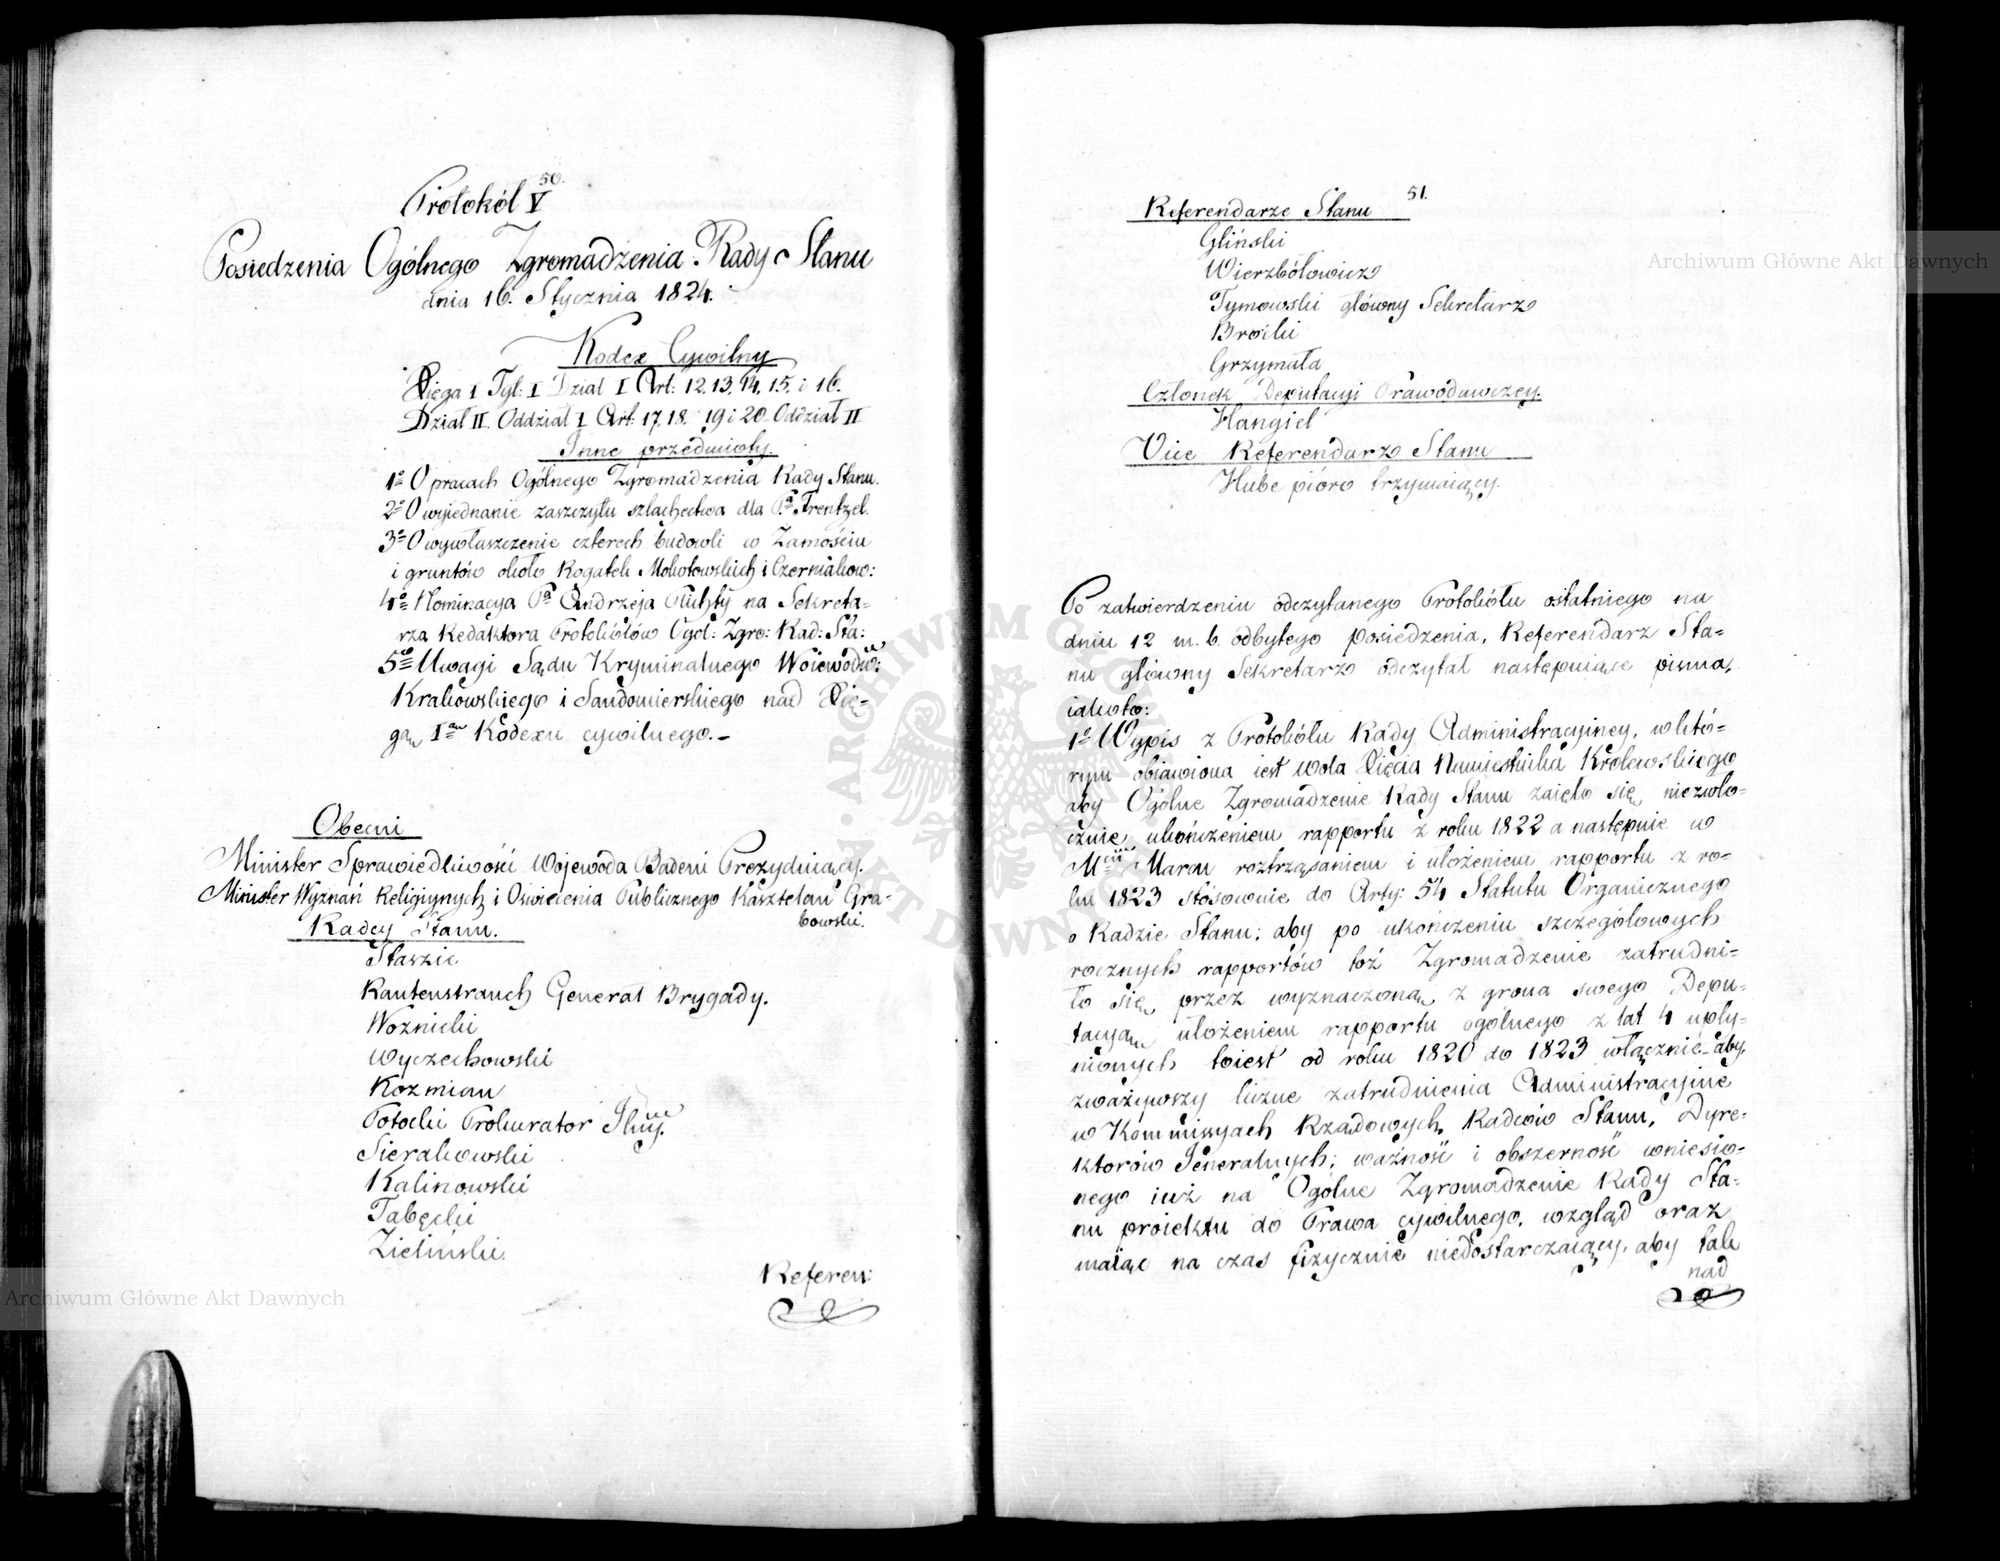 50.
Protokół V
Posiedzenia Ogólnego Zgromadzenia Rady Stanu
dnia 16. Stycznia 1824.
Kodex Cywilny
Xięga I Tyt: I Dział I Art: 12. 13. 14. 15. i 16.
Dział II. Oddział I Art: 17. 18. 19 i 20. Oddział II
Inne przedmioty.
1o O pracach Ogólnego Zgromadzenia Rady Stanu.
2o O wyjednanie zaszczytu szlachectwa dla Pa Frentzel.
3o O wywłaszczenie czterech budowli w Zamościu
i gruntów około Rogatek Mokotowskich i Czerniakow:
4o Nominacya Pa Andrzeja Pluhty na Sekreta=
rza Redaktora Protokółów Ogól: Zgro: Rad: Sta:
5o Uwagi Sądu Kryminalnego Woiewodw:
Krakowskiego i Sandomierskiego nad Xię=
gą Ią Kodexu cywilnego.–
Obecni
Minister Sprawiedliwości Wojewoda Badeni Prezyduiący.
Minister Wyznań Religiynych i Oświecenia Publicznego Kasztelan Gra=
bowski.
Radcy Stanu.
Staszic
Rautenstrauch Generał Brygady.
Woznicki
Wyczechowski
Kozmian
Potocki Prokurator Jlny.
Sierakowski
Kalinowski
Tabęcki
Zieliński.
Referen:
51.
Referendarze Stanu
Gliński
Wierzbołowicz
Tymowski główny Sekretarz
Brocki
Grzymała
Członek Deputacyi Prawodawczey.
Hangiel
Vice Referendarz Stanu
Hube pióro trzymaiący.
Po zatwierdzeniu odczytanego Protokółu ostatniego na
dniu 12 m. b. odbytego posiedzenia, Referendarz Sta=
nu główny Sekretarz odczytał następuiące pisma,
iakoto:
1o Wypis z Protokółu Rady Administracyiney, w któ=
rym obiawiona iest wola Xięcia Namiestnika Królewskiego
aby Ogólne Zgromadzenie Rady Stanu zaięło się niezwło=
cznie ukończeniem rapportu z roku 1822 a następnie w
Mcu Marcu roztrząsaniem i ułożeniem rapportu z ro=
ku 1823 stósownie do Arty: 54 Statutu Organicznego
o Radzie Stanu; aby po ukończeniu szczegółowych
rocznych rapportów toż Zgromadzenie zatrudni=
ło się przez wyznaczoną z grona swego Depu=
tacyą ułożeniem rapportu ogólnego z lat 4 upły=
nionych toiest od roku 1820 do 1823 włącznie – aby
zważywszy liczne zatrudnienia Administracyine
w Kommissyach Rządowych, Radców Stanu, Dyre=
ktorów Jeneralnych; ważność i obszerność wniesio=
nego iuż na Ogólne Zgromadzenie Rady Sta=
nu proiektu do Prawa cywilnego, wzgląd oraz
maiąc na czas fizycznie niedostarczaiący, aby tak
nad
Archiwum Główne Akt Dawnych
Archiwum Główne Akt Dawnych
ARCHIWUM GŁÓWNE AKT DAWNYCH